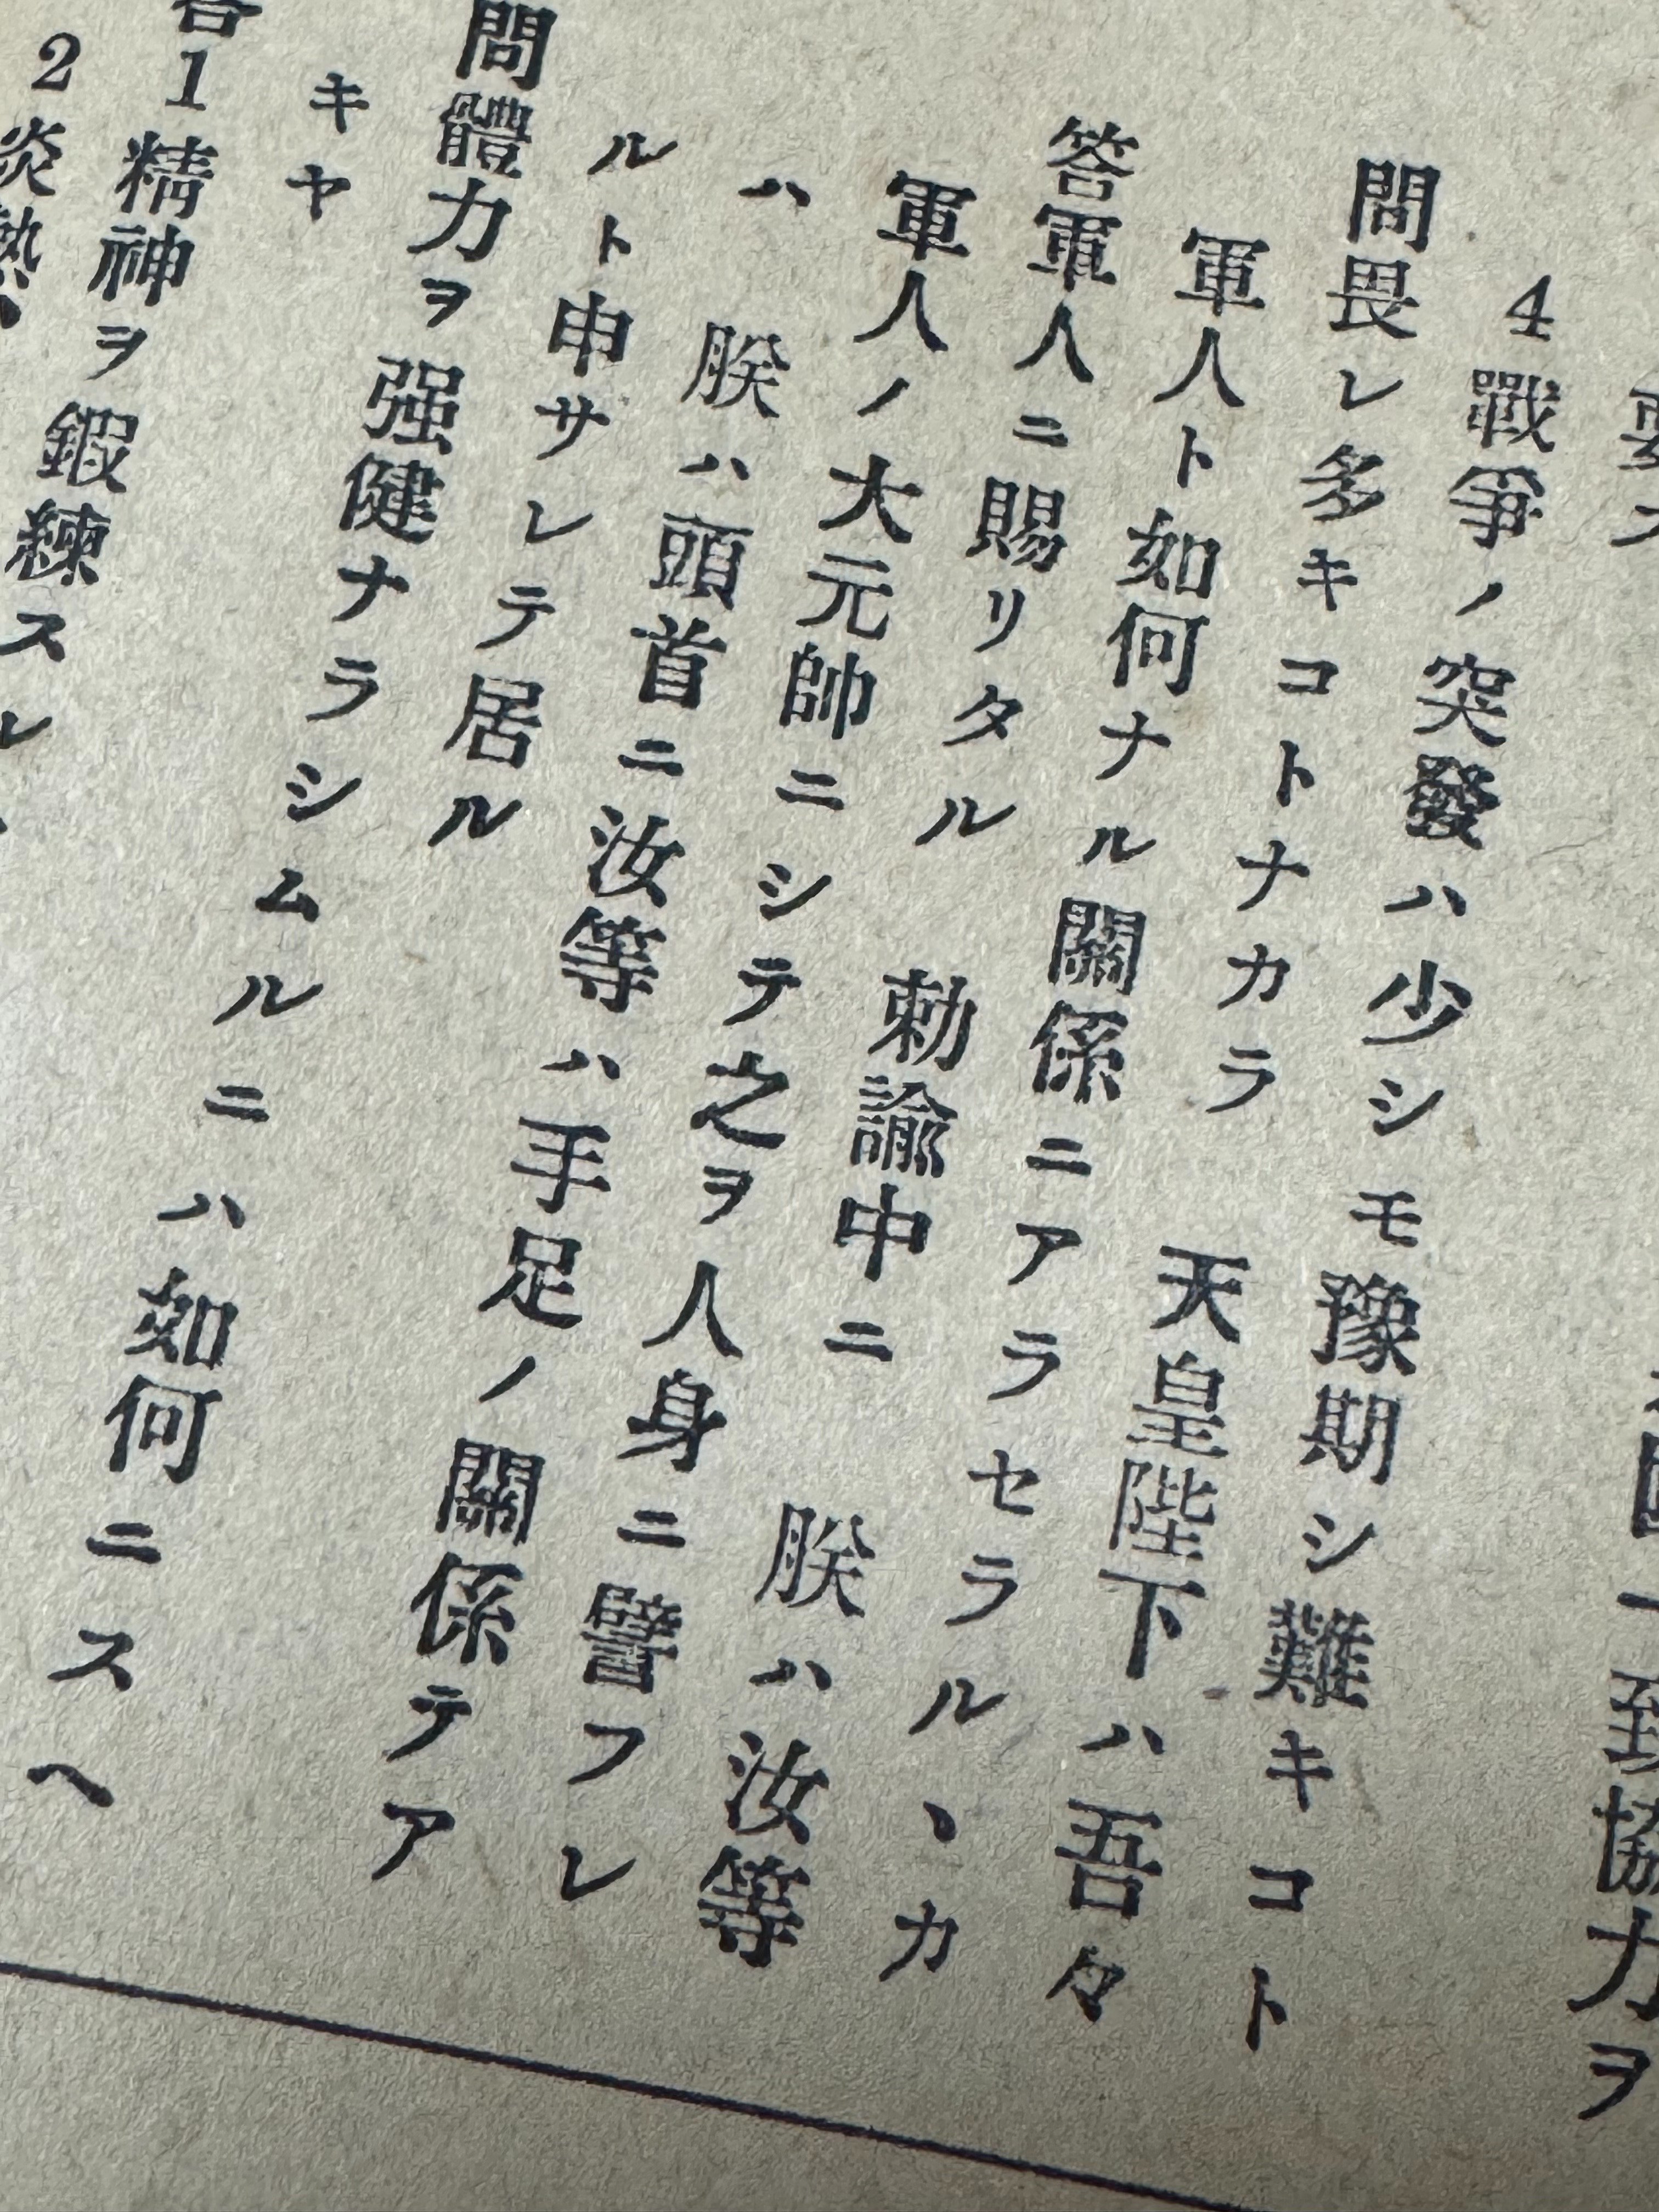 要ス
一致協力ヲ
4戰爭ノ突發ハ少シモ豫期シ難キコト
問畏レ多キコトナカラ　天皇陛下ハ吾々
軍人ト如何ナル關係ニアラセラルヽカ
答軍人ニ賜リタル　勅諭中ニ　朕ハ汝等
軍人ノ大元帥ニシテ之ヲ人身ニ譬フレ
ハ　朕ハ頭首ニ汝等ハ手足ノ關係テア
ルト申サレテ居ル
問體力ヲ强健ナラシムルニハ如何ニスヘ
キヤ
答1精神ヲ鍜練スル
2炎熱、